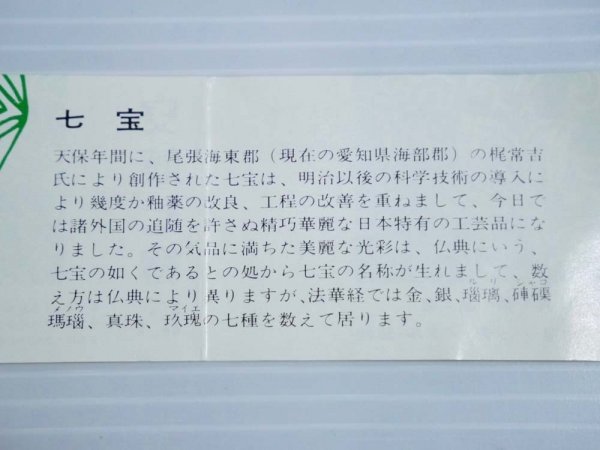 七宝
天保年間に、尾張海東郡（現在の愛知県海部郡）の梶常吉
氏により創作された七宝は、明治以後の科学技術の導入に
より幾度か釉薬の改良、工程の改善を重ねまして、今日で
は諸外国の追随を許さぬ精巧華麗な日本特有の工芸品にな
りました。その気品に満ちた美麗な光彩は、仏典にいう、
七宝の如くであるとの処から七宝の名称が生れまして、数
え方は仏典により異りますが、法華経では金、銀、瑠璃、硨磲
瑪瑙、真珠、玫瑰の七種を数えて居ります。